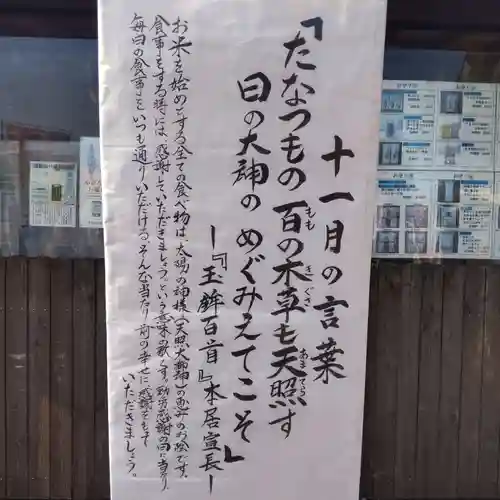 十一月の言葉
「たなつもの百の木草も天照す
もも
きぐさ
あまてら
日の大神のめぐみえてこそ」
ー『玉鉾百首』本居宣長ー
お米を始めとする全ての食べ物は、太陽の神様(天照大御神)の恵みのお陰です。
食事をする時には、感謝していただきましょう。という意味の歌です。勤労感謝の日に当たり、
毎日の食事をいつも通りいただける、そんな当たり前の幸せに感謝をもって
いただきましょう。